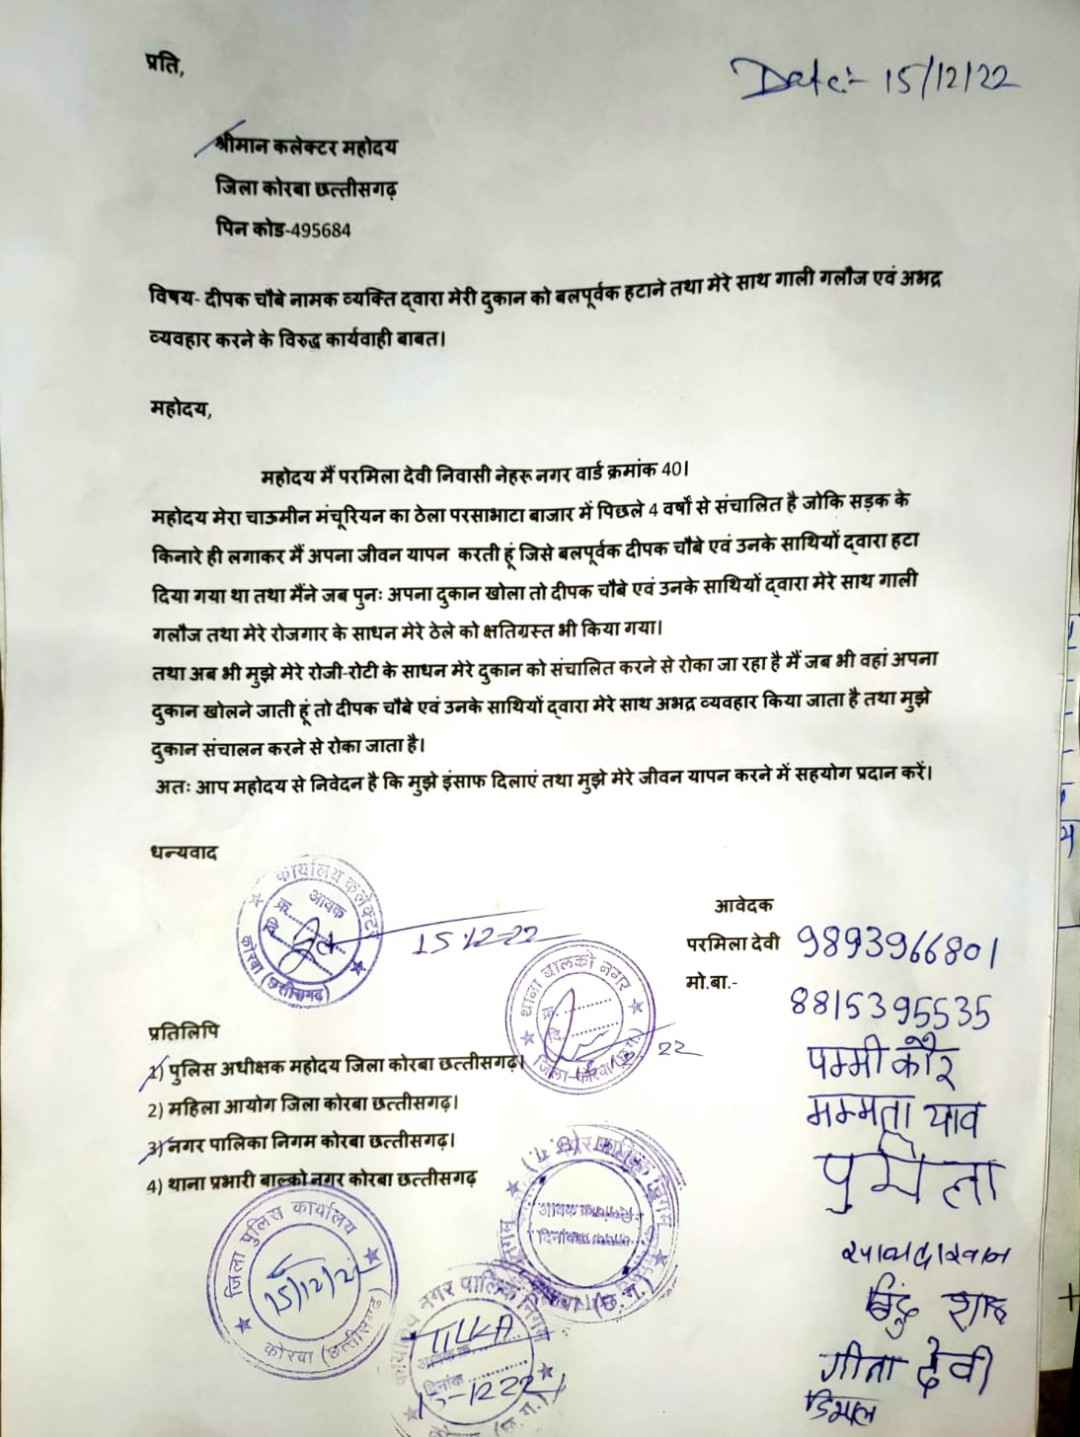 प्रति,
Date:- 15/12/22
श्रीमान कलेक्टर महोदय
जिला कोरबा छत्तीसगढ़
पिन कोड-495684
विषय- दीपक चौबे नामक व्यक्ति द्वारा मेरी दुकान को बलपूर्वक हटाने तथा मेरे साथ गाली गलौज एवं अभद्र
व्यवहार करने के विरुद्ध कार्यवाही बाबत।
महोदय,
महोदय मैं परमिला देवी निवासी नेहरू नगर वार्ड क्रमांक 40।
महोदय मेरा चाऊमीन मंचूरियन का ठेला परसाभाटा बाजार में पिछले 4 वर्षों से संचालित है जोकि सड़क के
किनारे ही लगाकर मैं अपना जीवन यापन करती हूं जिसे बलपूर्वक दीपक चौबे एवं उनके साथियों द्वारा हटा
दिया गया था तथा मैंने जब पुनः अपना दुकान खोला तो दीपक चौबे एवं उनके साथियों द्वारा मेरे साथ गाली
गलौज तथा मेरे रोजगार के साधन मेरे ठेले को क्षतिग्रस्त भी किया गया।
तथा अब भी मुझे मेरे रोजी-रोटी के साधन मेरे दुकान को संचालित करने से रोका जा रहा है मैं जब भी वहां अपना
दुकान खोलने जाती हूं तो दीपक चौबे एवं उनके साथियों द्वारा मेरे साथ अभद्र व्यवहार किया जाता है तथा मुझे
दुकान संचालन करने से रोका जाता है।
अतः आप महोदय से निवेदन है कि मुझे इंसाफ दिलाएं तथा मुझे मेरे जीवन यापन करने में सहयोग प्रदान करें।
धन्यवाद
कार्यालय कलेक्टर
आवक
क्र.
दि.
कोरबा (छत्तीसगढ़)
15.12-22
आवेदक
परमिला देवी 9893966801
मो.बा.-
8815395535
थाना बालको नगर
क्र.
दि.
जिला-कोरबा (छ.ग.)
22
प्रतिलिपि
1) पुलिस अधीक्षक महोदय जिला कोरबा छत्तीसगढ़।
2) महिला आयोग जिला कोरबा छत्तीसगढ़।
3) नगर पालिका निगम कोरबा छत्तीसगढ़।
4) थाना प्रभारी बाल्को नगर कोरबा छत्तीसगढ़
पम्मी कौर
मममता याव
गीता देवी
जिला पुलिस कार्यालय
15/12/22
कोरबा (छत्तीसगढ़)
नगर पालिक निगम
दिनांक